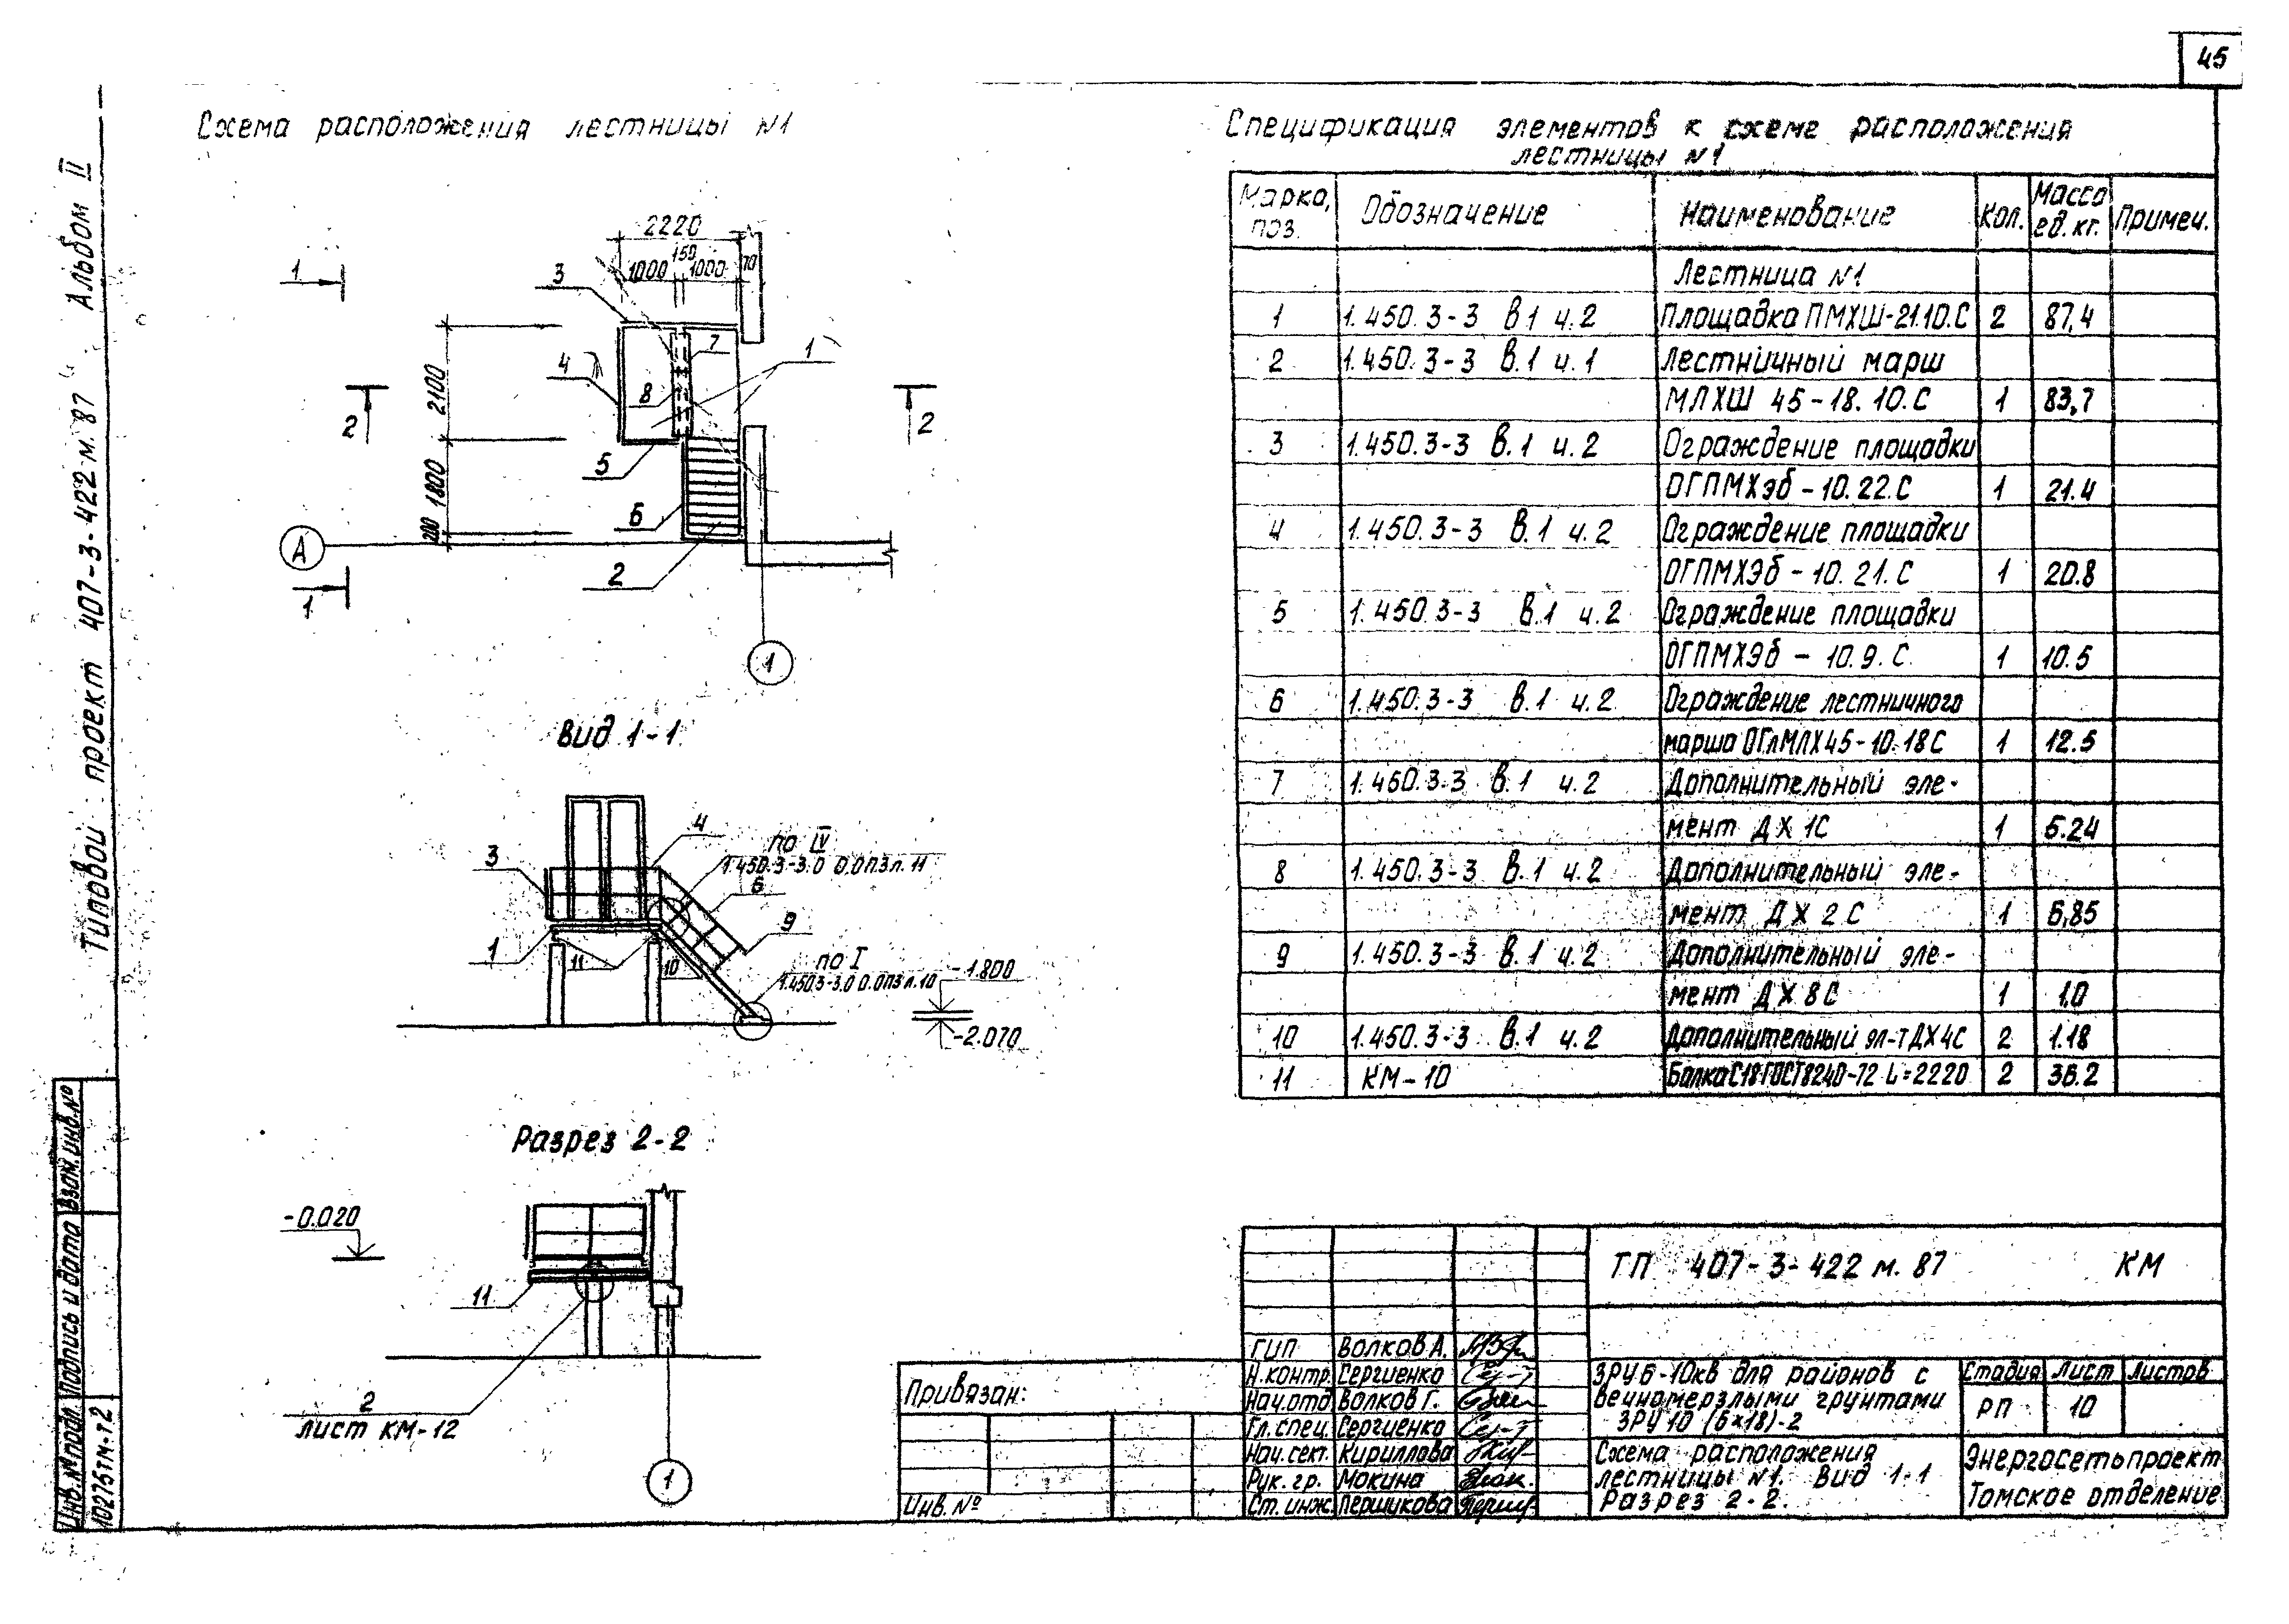 45
Схема расположения лестницы №1
2220
150
1000 1000 70
1
3
7
1
4
8
2
2
5
6
2100
1800
200
А
2
1
1
Вид 1-1
4
по IV
1.450.3-3.0 0.0ПЗ л.11
6
3
9
1
11
10
по I
1.450.3-3.0 0.0ПЗ л.10
-1.800
-2.070
Разрез 2-2
-0.020
11
2
лист КМ-12
1
Спецификация элементов к схеме расположения
лестницы №1
Марка, поз. Обозначение Наименование Кол. Масса ед. кг. Примеч.
Лестница №1
1 1.450.3-3 в1 ч.2 Площадка ПМХШ-21.10.С 2 87,4
2 1.450.3-3 в.1 ч.1 Лестничный марш
МЛХШ 45-18.10.С 1 83,7
3 1.450.3-3 в.1 ч.2 Ограждение площадки
ОГПМХэб-10.22.С 1 21.4
4 1.450.3-3 в.1 ч.2 Ограждение площадки
ОГПМХЭб-10.21.С 1 20.8
5 1.450.3-3 в.1 ч.2 Ограждение площадки
ОГПМХЭб-10.9.С. 1 10.5
6 1.450.3-3 в.1 ч.2 Ограждение лестничного
марша ОГлМЛХ45-10.18С 1 12.5
7 1.450.3-3 в.1 ч.2 Дополнительный эле-
мент ДХ 1С 1 6.24
8 1.450.3-3 в.1 ч.2 Дополнительный эле-
мент ДХ 2С 1 6,85
9 1.450.3-3 в.1 ч.2 Дополнительный эле-
мент ДХ 8С 1 1.0
10 1.450.3-3 в.1 ч.2 Дополнительный эл-т ДХ4С 2 1.18
11 КМ-10 Балка С18 ГОСТ 8240-72 L=2220 2 36.2
ТП 407-3-422 м.87 КМ
ГИП Волков А.
Н.контр. Сергиенко
Нач.отд Волков Г.
Гл.спец. Сергиенко
Нач.сект. Кириллова
Рук.гр. Мокина
Ст.инж. Першукова
ЗРУ 6-10кв для районов с
вечномерзлыми грунтами
ЗРУ 10 (6×18)-2
Стадия Лист Листов
РП 10
Схема расположения
лестницы №1. Вид 1-1
Разрез 2-2.
Энергосетьпроект
Томское отделение
Привязан:
Инв.№
Типовой проект 407-3-422 м.87 Альбом II
Взам.инв.№
Подпись и дата
Инв.№подл.
10276тм-т2